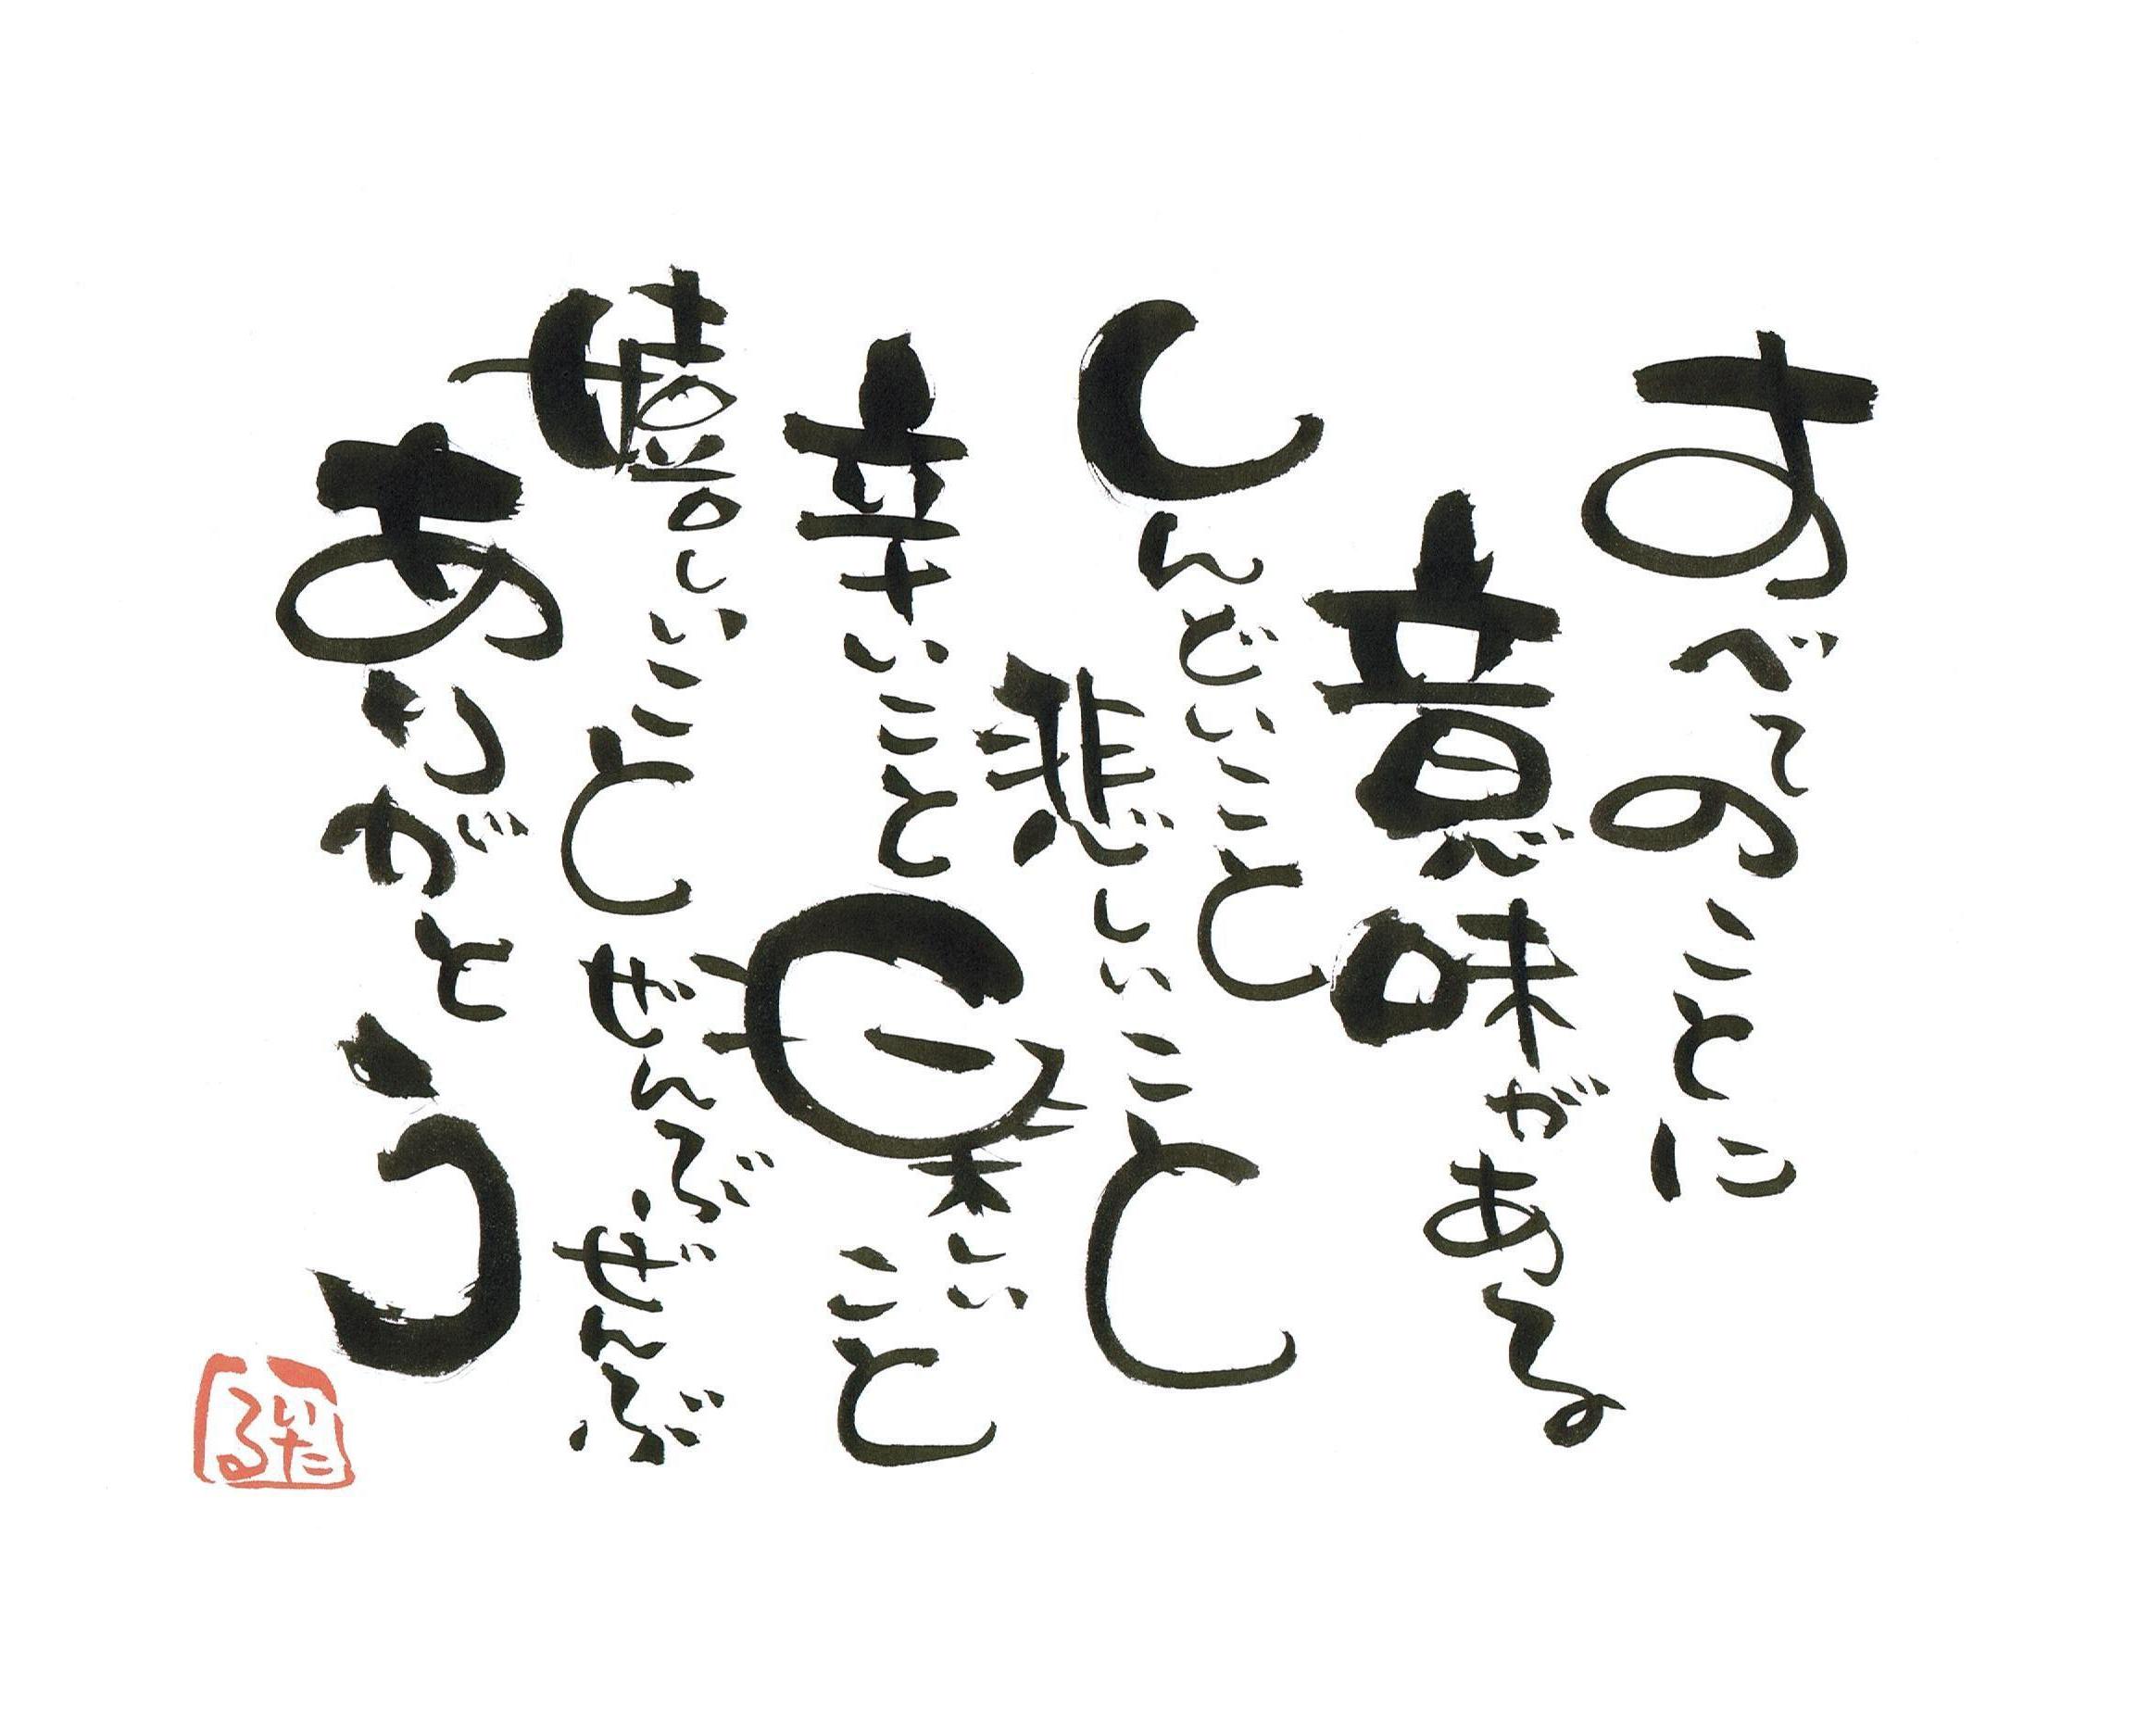 すべてのことに
意味がある
しんどいこと
悲しいこと
辛いこと
楽しいこと
嬉しいこと
ぜんぶぜんぶ
ありがとう
いたる